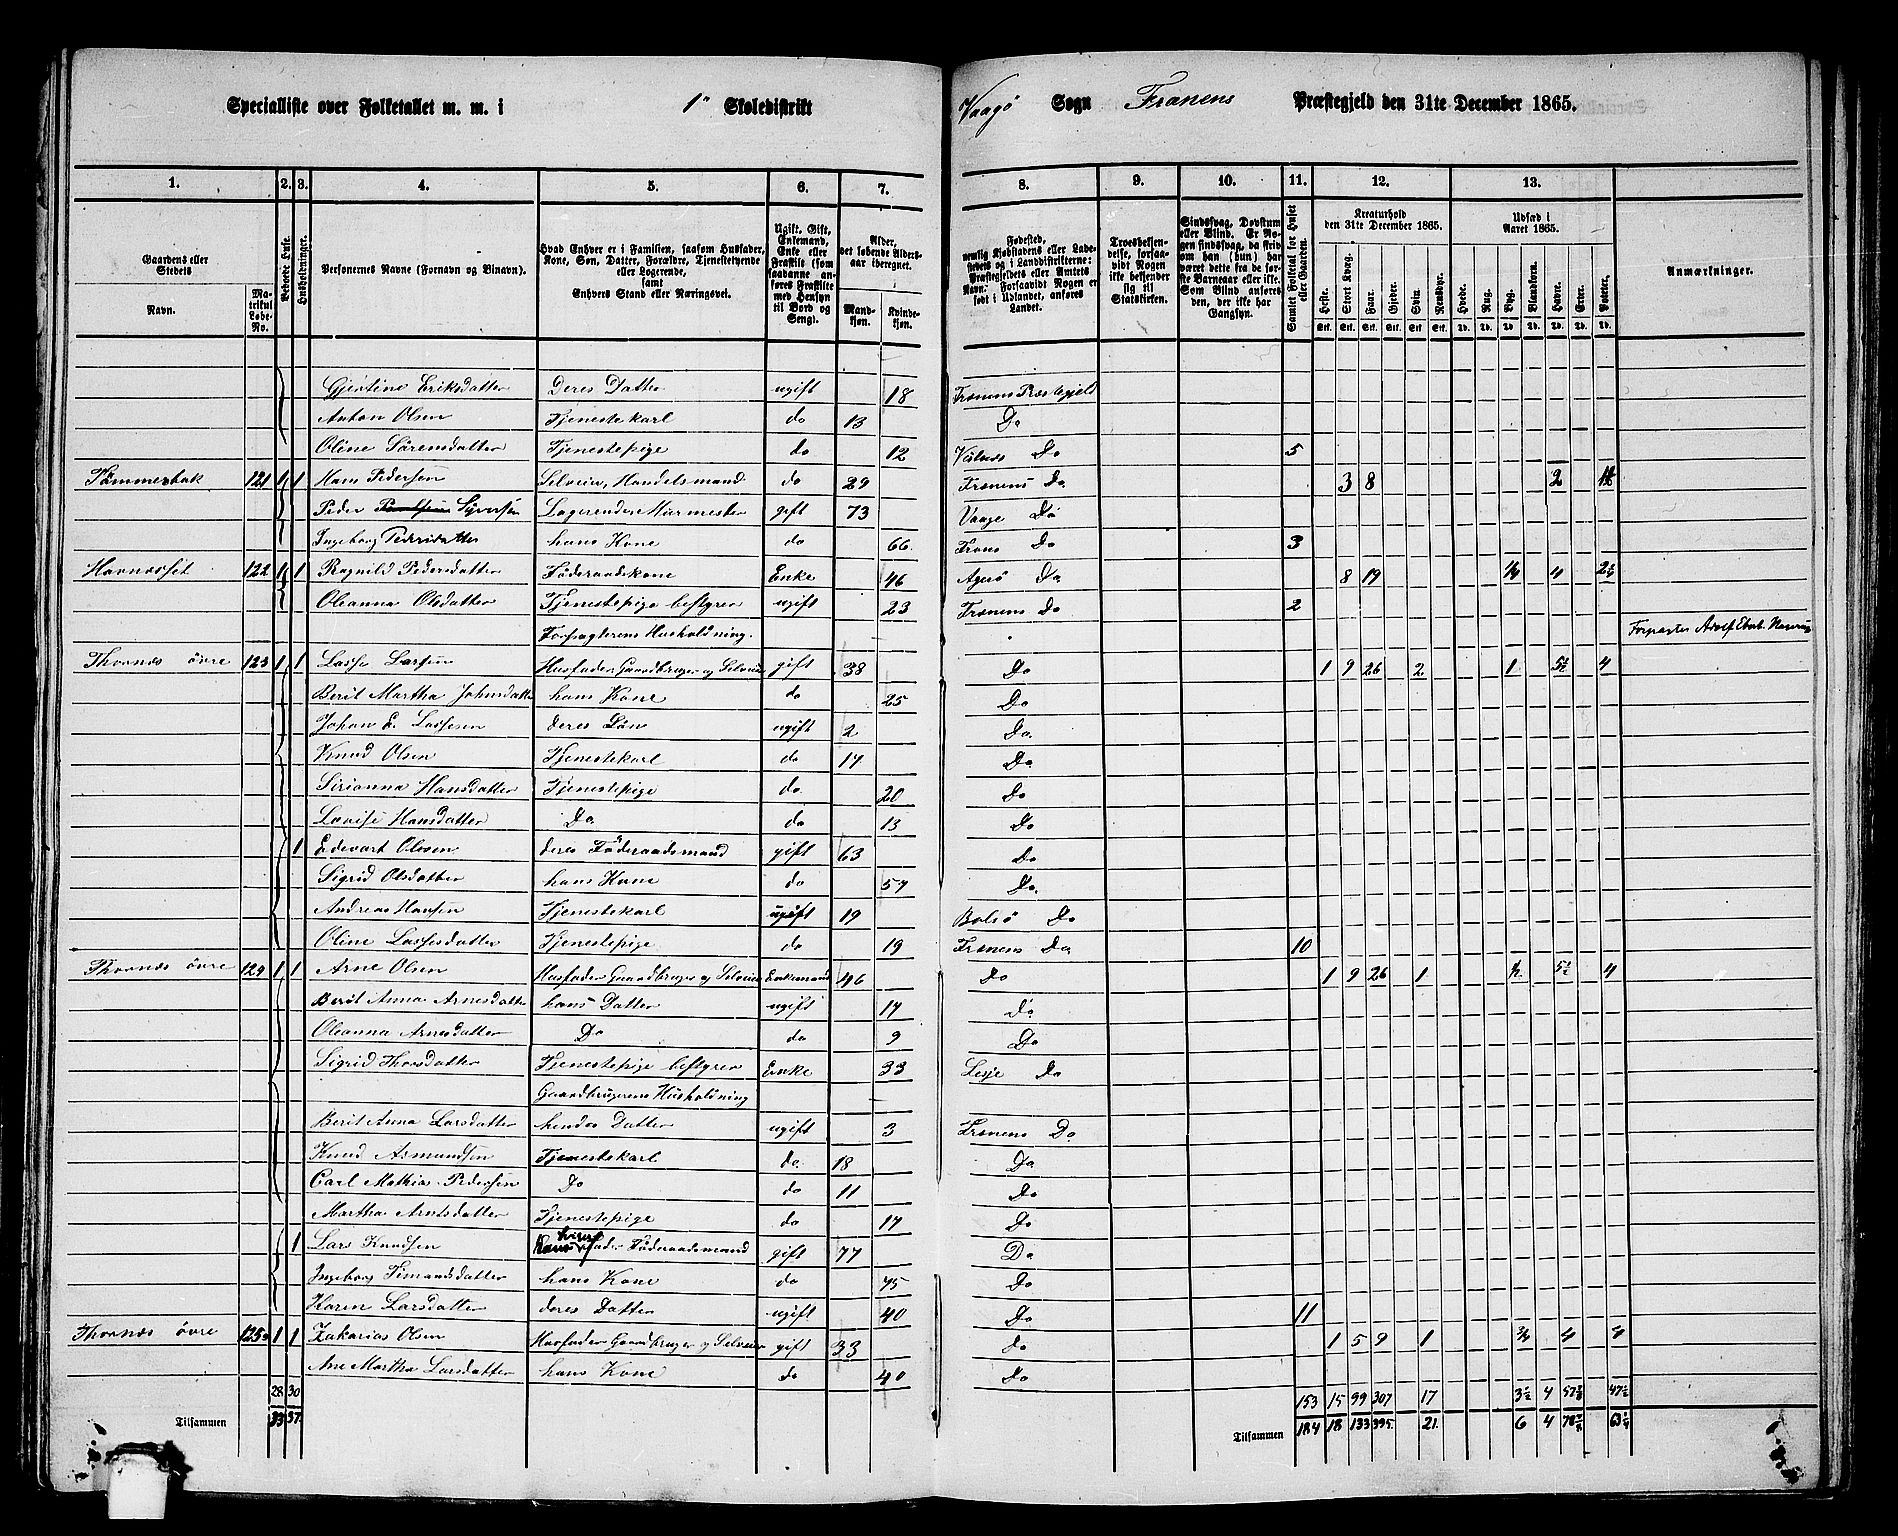 Specialliste over Folketallet m. m. i 1ste Skoledistrikt Vaagö Sogn Frænens Præstegjeld den 31te December 1865.
1. 2. 3. 4. 5. 6. 7. 8. 9. 10. 11. 12. 13.
Gaardens eller Stedets
Navn.
Matrikul Løbe-No.
Beboede Huse.
Husholdninger.
Personernes Navne (Fornavn og Binavn).
Hvad Enhver er i Familien, saasom Husfader, Kone, Søn, Datter, Forældre, Tjenestetyende eller Logerende, samt Enhvers Stand eller Næringsvei.
Ugift, Gift, Enkemand, Enke eller Fraskilt (som saadanne anføres Fraskilte med Hensyn til Bord og Seng).
Alder, det løbende Alders-aar iberegnet.
Mandkjøn. Kvindekjøn.
Fødested, nemlig Kjøbstadens eller Ladestedets og i Landdistrikterne: Præstegjeldets eller Amtets Navn. Forsaavidt Nogen er født i Udlandet, anføres Landet.
Troesbekjendelse, forsaavidt Nogen ikke bekjender sig til Statskirken.
Sindssvag, Døvstum eller Blind. Er Nogen sindssvag, da skrives om han (hun) har været dette fra de første Barneaar eller ikke. Som Blind anføres den, der ikke har Gangsyn.
Samlet Folketal for Huset eller Gaarden.
Kreaturhold den 31te December 1865.
Heste. Stort Kvæg. Faar. Gjeder. Sviin. Rensdyr.
Udsæd i Aaret 1865.
Hvede. Rug. Byg. Blandkorn. Havre. Erter. Poteter.
Anmærkninger.
Gjertine Eriksdatter Deres Datter ugift 18 Frænens Præstegjeld
Anton Olsen Tjenestekarl do 13 Do
Oline Sørensdatter Tjenestepige do 12 Do 5
Tømmerbak 121 1 1 Hans Pedersen Selveier, Handelsmand do 29 Frænens Do 3 8 2
Peder Syversen Logerende Murmester gift 73 Vaage Do
Ingeborg Pedersdatter hans Kone do 66 Fræns Do 3
Havnæsset 122 1 1 Ragnild Pedersdatter Föderaadskone Enke 46 Agerö Do 8 19 4
Oleanna Olsdatter Tjenestepige bestyrer ugift 23 Frænens Do 2
Forpagterens Husholdning.
Thornæs övre 123 1 1 Lasse Larsen Husfader Gaardbruger og Selveier gift 38 Do 1 9 26 2 1 5½ 4
Berit Martha Johnsdatter hans Kone do 25 Do
Johan E. Lassesen deres Sön ugift 2 Do
Knud Olsen Tjenestekarl do 17 Do
Sirianna Hansdatter Tjenestepige do 20 Do
Lovise Hansdatter Do do 13 Do
1 Edevart Olesen deres Föderaadsmand gift 63 Do
Sigrid Olsdatter hans Kone do 57 Do
Andreas Hansen Tjenestekarl ugift 19 Bolsö Do
Oline Lassesdatter Tjenestepige do 19 Frænens Do 10
Thornæs övre 124 1 1 Arne Olsen Husfader Gaardbruger og Selveier Enkemand 46 Do 1 9 26 1 ½ 5½ 4
Berit Anna Arnesdatter hans Datter ugift 17 do
Oleanna Arnesdatter Do do 9 Do
Sigrid Thorsdatter Tjenestepige bestyrer Enke 33 Lesje Do
Gaardbrugerens Husholdning
Berit Anna Larsdatter hendes Datter ugift 3 Frænens Do
Knud Asmundsen Tjenestekarl do 18 Do
Carl Mathias Pedersen Do do 11 Do
Martha Arntsdatter Tjenestepige do 17 Do
1 Lars Knudsen Föderaadsmand gift 77 Do
Ingeborg Simonsdatter hans Kone do 75 Do
Karen Larsdatter deres Datter ugift 40 Do 11
Thornæs övre 125a 1 1 Zakarias Olsen Husfader Gaardbruger og Selveier gift 33 Do 1 5 9 1 4 4
Ane Martha Larsdatter hans Kone do 40 Do
28 30 153 15 99 307 17 3½ 4 47½
Tilsammen 33 37 Tilsammen 184 18 133 395 21 6 4